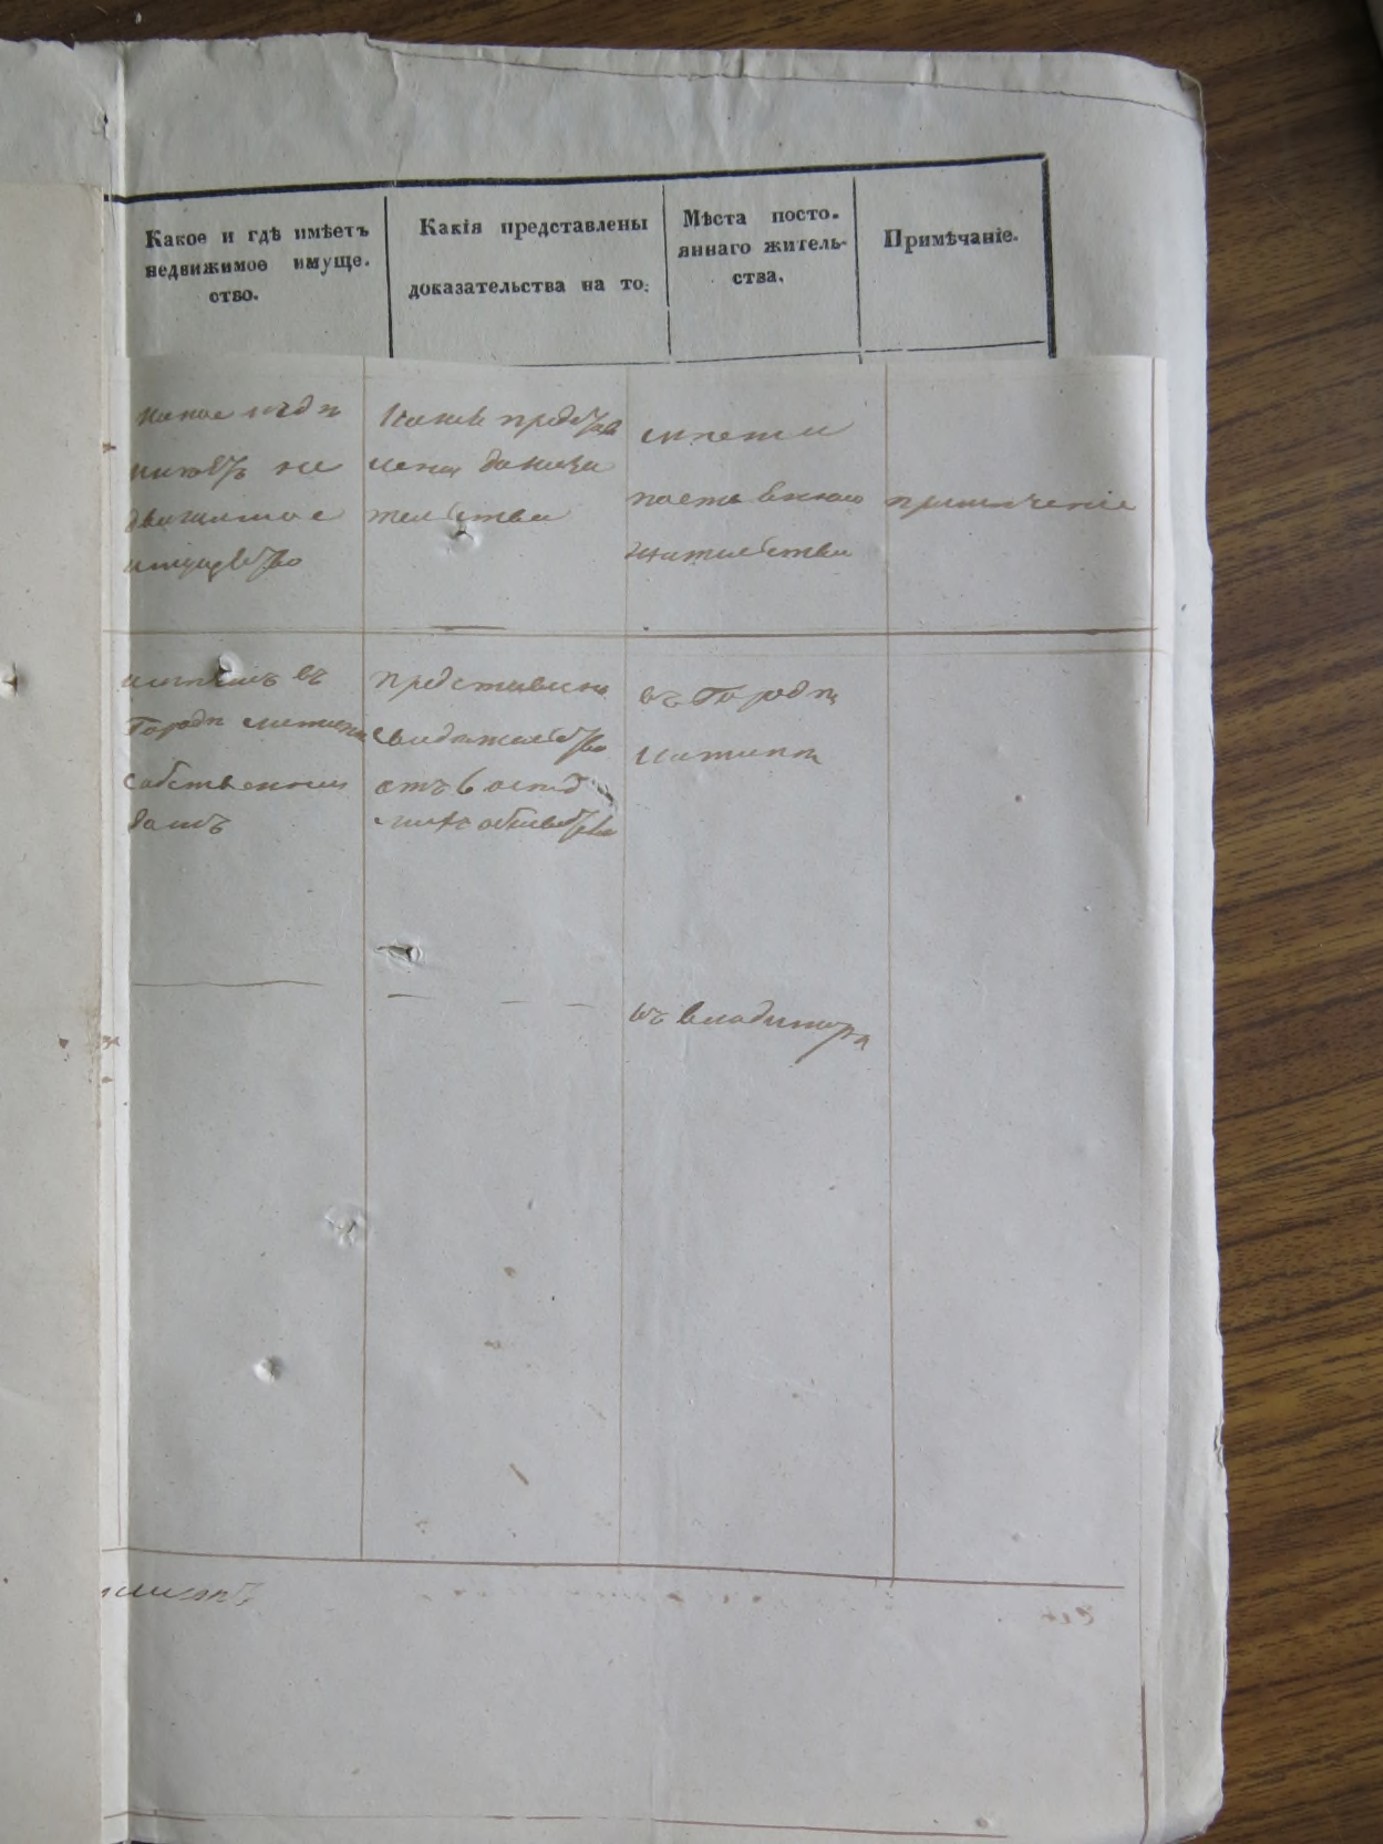 Какое и гдѣ имѣетъ
недвижимое имуще.
ство.
Какія представлены
доказательства на то.
Мѣста посто.
яннаго житель-
ства.
Примѣчаніе.
какое гдѣ
имѣетъ не
движимое
имущество
Какие представ
лены доказа
тельства
место
постоянного
жительства
примечение
имѣемъ въ
Городѣ
собственный
домъ
представлено
свидѣтельство
отъ
въ Городѣ
въ владимерѣ